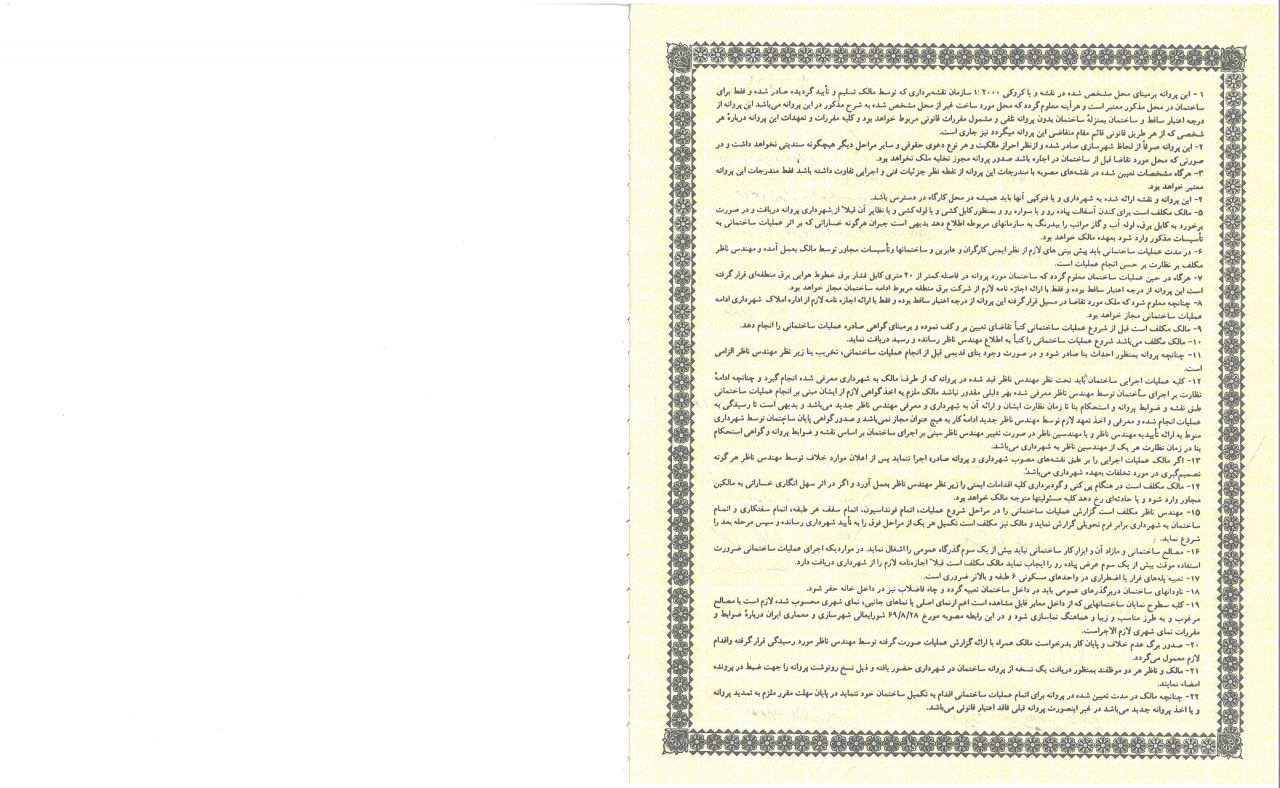 ۱ - این پروانه برمبنای محل مشخص شده در نقشه و یا کروکی ۱:۲۰۰۰ سازمان نقشه‌برداری که توسط مالک تسلیم و تأیید گردیده صادر شده و فقط برای
ساختمان در محل مذکور معتبر است و هرآینه معلوم گردد که محل مورد ساخت غیر از محل مشخص شده به شرح مذکور در این پروانه می‌باشد این پروانه از
درجه اعتبار ساقط و ساختمان بمنزلهٔ ساختمان بدون پروانه تلقی و مشمول مقررات قانونی مربوط خواهد بود و کلیه مقررات و تعهدات این پروانه دربارهٔ هر
شخصی که از هر طریق قانونی قائم مقام متقاضی این پروانه میگردد نیز جاری است.
۲- این پروانه صرفاً از لحاظ شهرسازی صادر شده و ازنظر احراز مالکیت و هر نوع دعوی حقوقی و سایر مراحل دیگر هیچگونه سندیتی نخواهد داشت و در
صورتی که محل مورد تقاضا قبل از ساختمان در اجاره باشد صدور پروانه مجوز تخلیه ملک نخواهد بود.
۳- هرگاه مشخصات تعیین شده در نقشه‌های مصوبه با مندرجات این پروانه از نقطه نظر جزئیات فنی و اجرایی تفاوت داشته باشد فقط مندرجات این پروانه
معتبر خواهد بود.
۴- این پروانه و نقشه ارائه شده به شهرداری و یا فتوکپی آنها باید همیشه در محل کارگاه در دسترس باشد.
۵- مالک مکلف است برای کندن آسفالت پیاده رو و یا سواره رو و بمنظور کابل کشی و یا لوله کشی و یا نظایر آن قبلاً از شهرداری پروانه دریافت و در صورت
برخورد به کابل برق، لوله آب و گاز مراتب را بیدرنگ به سازمانهای مربوطه اطلاع دهد بدیهی است جبران هرگونه خساراتی که بر اثر عملیات ساختمانی به
تأسیسات مذکور وارد شود بعهده مالک خواهد بود.
۶- در مدت عملیات ساختمانی باید پیش بینی های لازم از نظر ایمنی کارگران و عابرین و ساختمانها وتأسیسات مجاور توسط مالک بعمل آمده و مهندس ناظر
مکلف بر نظارت بر حسن انجام عملیات است.
۷- هرگاه در حین عملیات ساختمان معلوم گردد که ساختمان مورد پروانه در فاصله کمتر از ۲۰ متری کابل فشار برق خطوط هوایی برق منطقه‌ای قرار گرفته
است این پروانه از درجه اعتبار ساقط بوده و فقط با ارائه اجازه نامه لازم از شرکت برق منطقه مربوط ادامه ساختمان مجاز خواهد بود.
۸- چنانچه معلوم شود که ملک مورد تقاضا در مسیل قرار گرفته این پروانه از درجه اعتبار ساقط بوده و فقط با ارائه اجازه نامه لازم از اداره املاک شهرداری ادامه
عملیات ساختمانی مجاز خواهد بود.
۹- مالک مکلف است قبل از شروع عملیات ساختمانی کتباً تقاضای تعیین بر و کف نموده و برمبنای گواهی صادره عملیات ساختمانی را انجام دهد.
۱۰- مالک مکلف می‌باشد شروع عملیات ساختمانی را کتباً به اطلاع مهندس ناظر رسانده و رسید دریافت نماید.
۱۱- چنانچه پروانه بمنظور احداث بنا صادر شود و در صورت وجود بنای قدیمی قبل از انجام عملیات ساختمانی، تخریب بنا زیر نظر مهندس ناظر الزامی
است.
۱۲- کلیه عملیات اجرایی ساختمان باید تحت نظر مهندس ناظر قید شده در پروانه که از طرف مالک به شهرداری معرفی شده انجام گیرد و چنانچه ادامهٔ
نظارت بر اجرای ساختمان توسط مهندس ناظر معرفی شده بهر دلیلی مقدور نباشد مالک ملزم به اخذ گواهی لازم از ایشان مبنی بر انجام عملیات ساختمانی
طبق نقشه و ضوابط پروانه و استحکام بنا تا زمان نظارت ایشان و ارائه آن به شهرداری و معرفی مهندس ناظر جدید می‌باشد و بدیهی است تا رسیدگی به
عملیات انجام شده و معرفی و اخذ تعهد لازم توسط مهندس ناظر جدید ادامهٔ کار به هیچ عنوان مجاز نمی‌باشد و صدور گواهی پایان ساختمان توسط شهرداری
منوط به ارائه تأییدیه مهندس ناظر و یا مهندسین ناظر در صورت تغییر مهندس ناظر مبنی بر اجرای ساختمان بر اساس نقشه و ضوابط پروانه و گواهی استحکام
بنا در زمان نظارت هر یک از مهندسین ناظر به شهرداری می‌باشد.
۱۳- اگر مالک عملیات اجرایی را بر طبق نقشه‌های مصوب شهرداری و پروانه صادره اجرا ننماید پس از اعلان موارد خلاف توسط مهندس ناظر هرگونه
تصمیم‌گیری در مورد تخلفات بعهده شهرداری می‌باشد.
۱۴- مالک مکلف است در هنگام پی کنی و گودبرداری کلیه اقدامات ایمنی را زیر نظر مهندس ناظر بعمل آورد و اگر در اثر سهل انگاری خساراتی به مالکین
مجاور وارد شود و یا حادثه‌ای رخ دهد کلیه مسئولیتها متوجه مالک خواهد بود.
۱۵- مهندس ناظر مکلف است گزارش عملیات ساختمانی را در مراحل شروع عملیات، اتمام فونداسیون، اتمام سقف هر طبقه، اتمام سفتکاری و اتمام
ساختمان به شهرداری برابر فرم تحویلی گزارش نماید و مالک نیز مکلف است تکمیل هر یک از مراحل فوق را به تأیید شهرداری رسانده و سپس مرحله بعد را
شروع نماید.
۱۶- مصالح ساختمانی و مازاد آن و ابزار کار ساختمانی نباید بیش از یک سوم گذرگاه عمومی را اشغال نماید. در مواردیکه اجرای عملیات ساختمانی ضرورت
استفاده موقت بیش از یک سوم عرض پیاده رو را ایجاب نماید مالک مکلف است قبلاً اجازه‌نامه لازم را از شهرداری دریافت دارد.
۱۷- تعبیه پله‌های فرار یا اضطراری در واحدهای مسکونی ۶ طبقه و بالاتر ضروری است.
۱۸- ناودانهای ساختمان دربرگذرهای عمومی باید در داخل ساختمان تعبیه گردد و چاه فاضلاب نیز در داخل خانه حفر شود.
۱۹- کلیه سطوح نمایان ساختمانهایی که از داخل معابر قابل مشاهده است اعم ازنمای اصلی یا نماهای جانبی، نمای شهری محسوب شده لازم است با مصالح
مرغوب و به طرز مناسب و زیبا و هماهنگ نماسازی شود و در این رابطه مصوبه مورخ ۶۹/۸/۲۸ شورایعالی شهرسازی و معماری ایران دربارهٔ ضوابط و
مقررات نمای شهری لازم الاجراست.
۲۰- صدور برگ عدم خلاف و پایان کار بدرخواست مالک همراه با ارائه گزارش عملیات صورت گرفته توسط مهندس ناظر مورد رسیدگی قرار گرفته واقدام
لازم معمول می‌گردد.
۲۱- مالک و ناظر هر دو موظفند بمنظور دریافت یک نسخه از پروانه ساختمان در شهرداری حضور یافته و ذیل نسخ رونوشت پروانه را جهت ضبط در پرونده
امضاء نمایند.
۲۲- چنانچه مالک در مدت تعیین شده در پروانه برای اتمام عملیات ساختمانی اقدام به تکمیل ساختمان خود ننماید در پایان مهلت مقرر ملزم به تمدید پروانه
و یا اخذ پروانه جدید می‌باشد در غیر اینصورت پروانه قبلی فاقد اعتبار قانونی می‌باشد.